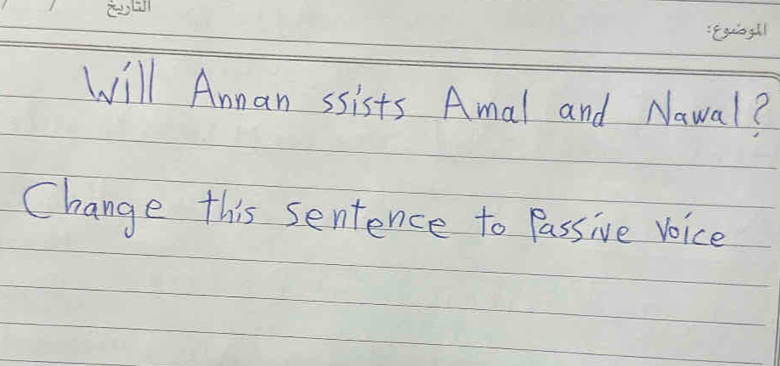 التاريخ / /
الموضوع:
Will Annan ssists Amal and Nawal?
Change this sentence to Passive voice